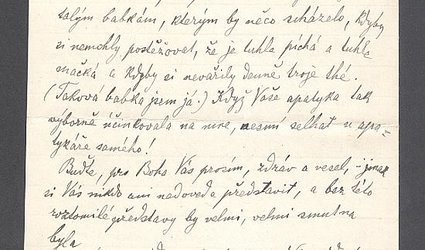 salým babkám, kterým by něco scházelo, kdyby
si nemohly postěžovat, že je tuhle píchá a tuhle
mačká a kdyby si nevařily denně troje thé.
(Taková babka jsem já.) Když Vaše apatyka tak
výborně účinkovala na mne, nesmí selhat u apa-
tykáře samého!
Buďte, pro Boha Vás prosím, zdráv a vesel, – jinak
si Vás nikdo ani nedovede představit, a bez této
roztomilé představy by velmi, velmi smutna
byla